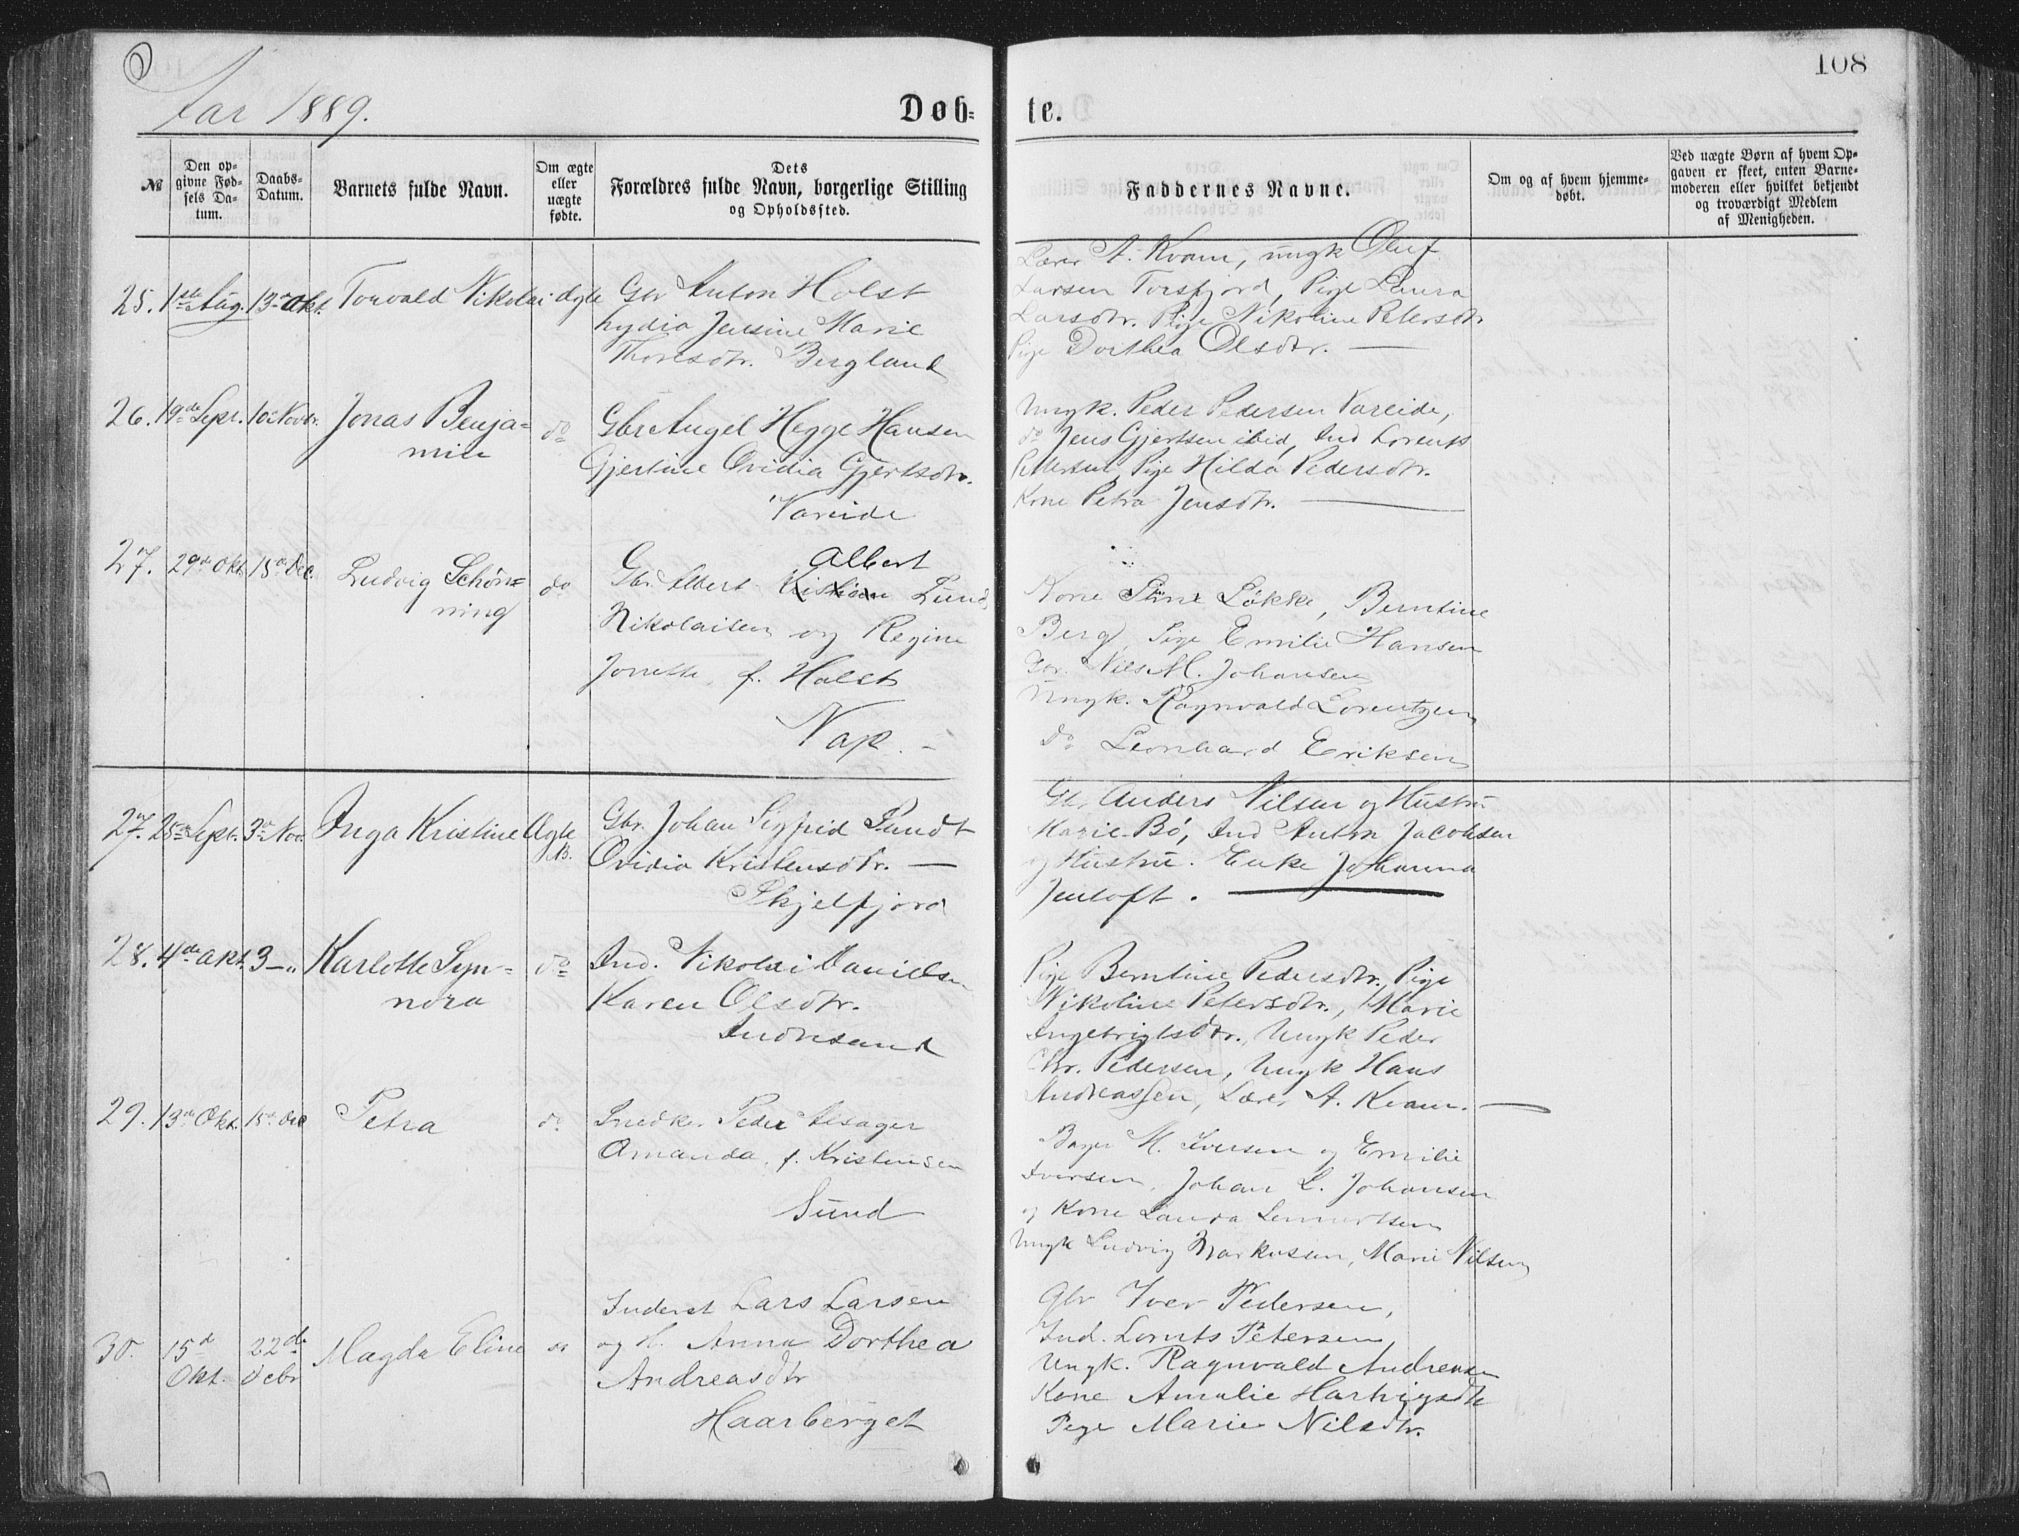 108
Aar 1889.
Døb- te.
№
Den opgivne Fødsels Datum.
Daabs-Datum.
Barnets fulde Navn.
Om ægte eller uægte fødte.
Dets Forældres fulde Navn, borgerlige Stilling og Opholdssted.
Faddernes Navne.
Om og af hvem hjemmedøbt.
Ved uægte Børn af hvem Opgaven er skeet, enten Barnemoderen eller hvilket bekjendt og troværdigt Medlem af Menigheden.
25. 1ste Aug. 13de Okt. Torvald Nikolai Ægte
Gbr Anton Holst
Lydia Jensine Marie
Thoresdtr. Bergland
Lærer A. Kvam, ungk Oluf
Larsen Torsfjord, Pige Laura
Larsdtr. Pige Nikoline Petersdtr
Pige Dorthea Olsdtr.
26. 19de Sept. 10de Novbr. Jonas Benja-
min
do
Gbr Angel Hegge Hansen
Gjertine Ovidia Gjertsdtr.
Vareide
Ungk. Peder Pedersen Vareide,
do Jens Gjertsen ibid, Ind Lorents
Petersen, Pige Hilda Pedersdtr.
Kone Petra Jensdtr.
27. 29de Okt. 15de Dec. Ludvig Schøn=
ning
do
Albert
Gbr. Albert Kistian Lund
Nikolaisen og Regine
Jonette f. Holst
Nap.
Kone Løkke, Berntine
Berg, Pige Emilie Hansen
Gbr. Nils M. Johansen
Ungk. Ragnvald Lorentzen
do Leonhard Eriksen
27. 25de Sept. 3de Nov. Inga Kristine Ægte
NB.
Gbr. Johan Sigfrid Pundt
Ovidia Kristensdtr.
Skjelfjord
Gbr Anders Nilsen og Hustru
Marie Bø, Ind Anton Jacobsen
og Hustru. Enke Johanna
Jentoft.
28. 4de Okt. 3 — " Karlotte Syn=
nøra
do
Ind. Nikolai Danielsen
Karen Olsdtr.
Andresand
Pige Berntine Pedersdtr. Pige
Nikoline Petersdtr., Marie
Ingebrigtsdtr., Ungk Peder
Chr. Pedersen, Ungk Hans
Andreassen, Lærer A. Kvam.
29. 13de Okt. 15de Dec Petra do
Snedker Peder Alsager
Amanda f. Kristensen
Sund
Bager M. Iversen og Emilie
Iversen, Johan L. Johansen
og Kone Laura Lennertsen
Ungk Ludvig Markussen, Marie Nilsen
30. 15de 22de
Okt. Debr
Magda Eline do
Inderst Lars Larsen
og H. Anna Dorthea
Andreasdtr
Haarberget
Gbr Iver Pedersen,
Ind. Lornts Petersen
Ungk. Ragnvald Andreasen
Kone Amalie Hartvigsdtr
Pige Marie Nilsdtr.